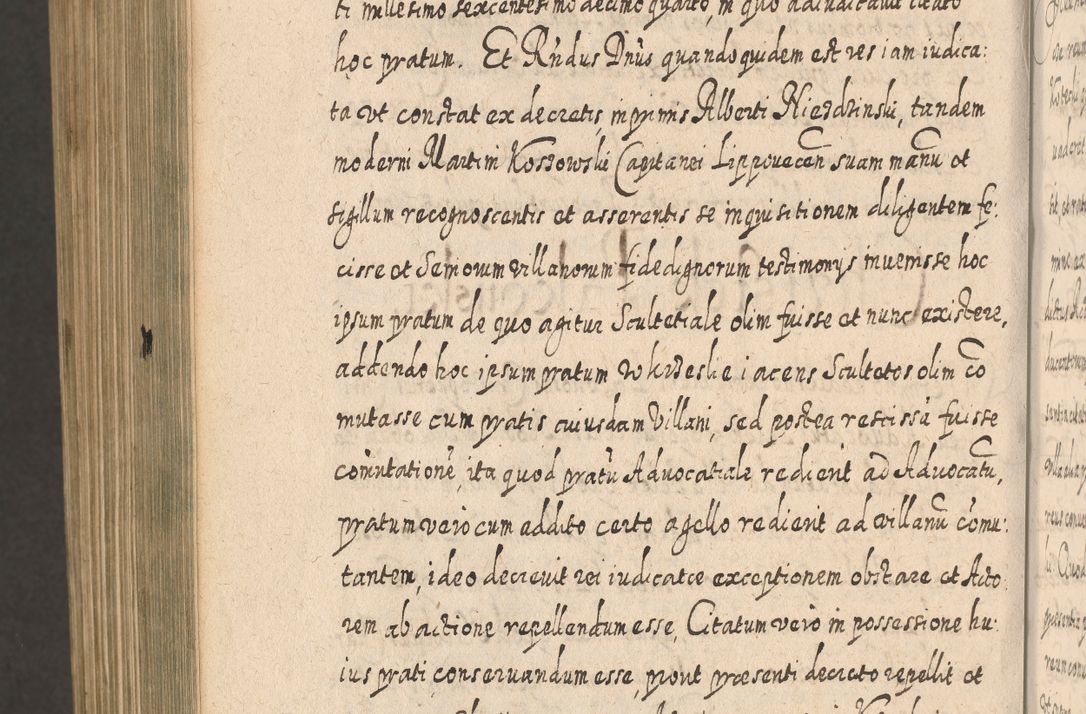 ti millesimo sexcentesimo decimo quarto, in quo adiudicauit citato
hoc pratum. Et Rndus Dnus quandoquidem est res iam iudica:
ta vt constat ex decretis, in primis Alberti Niezdzinski, tandem
moderni Martini Kossowski Capitanei Lippouecen suam manu et
sigillum recognoscentis et asserentis se inquisitionem diligentem fe:
cisse et Semorum villanorum fidedignorum testimonys inuenisse hoc
ipsum pratum de quo agitur Scultetiale olim fuisse et nunc existere,
addendo hoc ipsum pratum iacens Scultetos olim co
mutasse cum pratis cuiusdam Villani, sed postea rescissa fuisse
comutatione, ita quod pratu Aduocatiale redierit ad Aduocatu,
pratum vero cum addito certo agello redierit ad villanu comu:
tantem, ideo decreuit rei iudicatae exceptionem obstare et Acto
rem ab actione repellendum esse, Citatum vero in possessione hu:
ius prati conseruandum esse, prout praesenti decreto repellit et